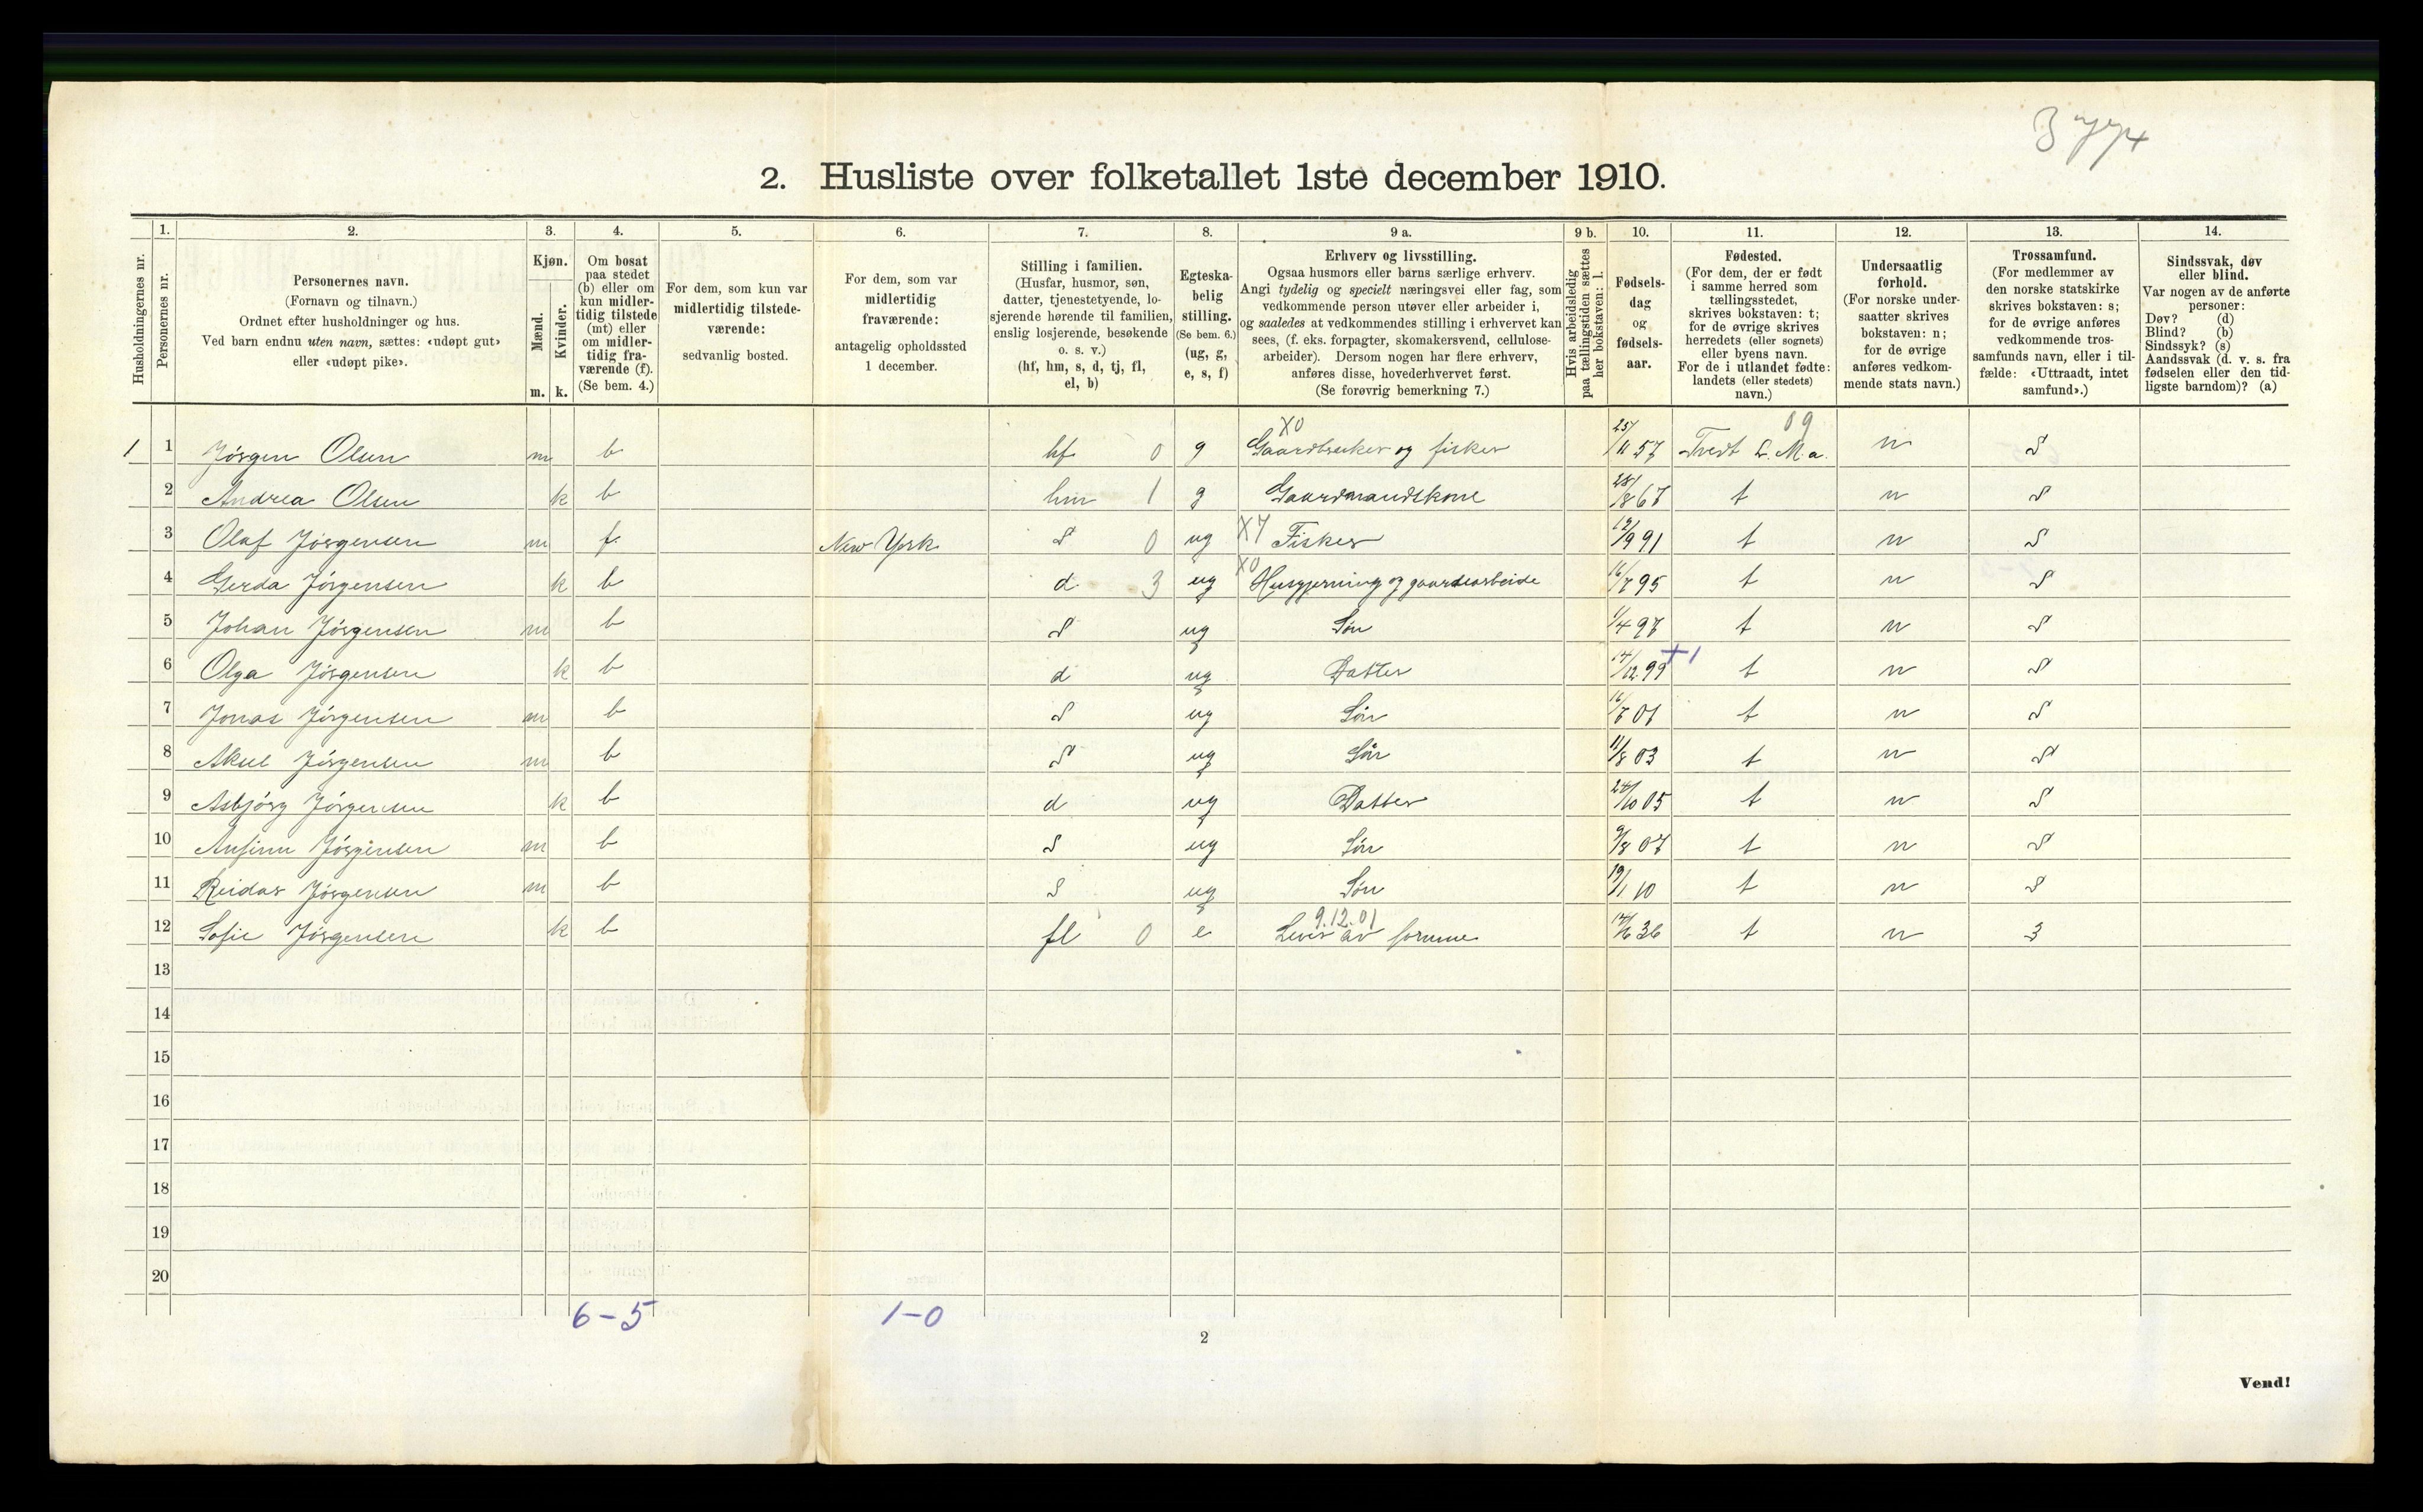 2. Husliste over folketallet 1ste december 1910.
Husholdningernes nr.
1. Personernes nr.
2. Personernes navn. (Fornavn og tilnavn.) Ordnet efter husholdninger og hus. Ved barn endnu uten navn, sættes: «udøpt gut» eller «udøpt pike».
3. Kjøn. Mænd. m. Kvinder. k.
4. Om bosat paa stedet (b) eller om kun midlertidig tilstede (mt) eller om midlertidig fraværende (f). (Se bem. 4.)
5. For dem, som kun var midlertidig tilstedeværende: sedvanlig bosted.
6. For dem, som var midlertidig fraværende: antagelig opholdssted 1 december.
7. Stilling i familien. (Husfar, husmor, søn, datter, tjenestetyende, losjerende hørende til familien, enslig losjerende, besøkende o. s. v.) (hf, hm, s, d, tj, fl, el, b)
8. Egteskabelig stilling. (Se bem. 6.) (ug, g, e, s, f)
9 a. Erhverv og livsstilling. Ogsaa husmors eller barns særlige erhverv. Angi tydelig og specielt næringsvei eller fag, som vedkommende person utøver eller arbeider i, og saaledes at vedkommendes stilling i erhvervet kan sees, (f. eks. forpagter, skomakersvend, cellulosearbeider). Dersom nogen har flere erhverv, anføres disse, hovederhvervet først. (Se forøvrig bemerkning 7.)
9 b. Hvis arbeidsledig paa tællingstiden sættes her bokstaven: l.
10. Fødselsdag og fødselsaar.
11. Fødested. (For dem, der er født i samme herred som tællingsstedet, skrives bokstaven: t; for de øvrige skrives herredets (eller sognets) eller byens navn. For de i utlandet fødte: landets (eller stedets) navn.)
12. Undersaatlig forhold. (For norske undersaatter skrives bokstaven: n; for de øvrige anføres vedkommende stats navn.)
13. Trossamfund. (For medlemmer av den norske statskirke skrives bokstaven: s; for de øvrige anføres vedkommende trossamfunds navn, eller i tilfælde: «Uttraadt, intet samfund».)
14. Sindssvak, døv eller blind. Var nogen av de anførte personer: Døv? (d) Blind? (b) Sindssyk? (s) Aandssvak (d. v. s. fra fødselen eller den tidligste barndom)? (a)
X0 09
1 1 Jörgen Olsen m b hf 0 g Gaardbruker og fisker 25/11 57 Tvedt L. M. a. n S
2 Andrea Olsen k b hm 1 g Gaardmandskone 28/8 67 t n S
3 Olaf Jörgensen m f. New York S 0 ug X7 Fisker 12/9 91 t n S
4 Gerda Jörgensen k b d 3 ug X0 Husgjerning og gaardsarbeide 16/7 95 t n S
5 Johan Jörgensen m b S ug Sön 11/4 97 t n S
6 Olga Jörgensen k b d ug Datter 14/12 99 +1 t n S
7 Jonas Jörgensen m b S ug Sön 16/7 01 t n S
8 Aksel Jörgensen m b S ug Sön 11/8 03 t n S
9 Asbjörg Jörgensen k b d ug Datter 24/10 05 t n S
10 Anfinn Jörgensen m b S ug Sön 9/8 07 t n S
11 Reidar Jörgensen m b S ug Sön 19/1 10 t n S
9.12.01
12 Sofie Jörgensen k b fl 0 e Lever av formue 14/6 36 t n S
13
14
15
16
17
18
19
20
6-5 1-0
2
Vend!